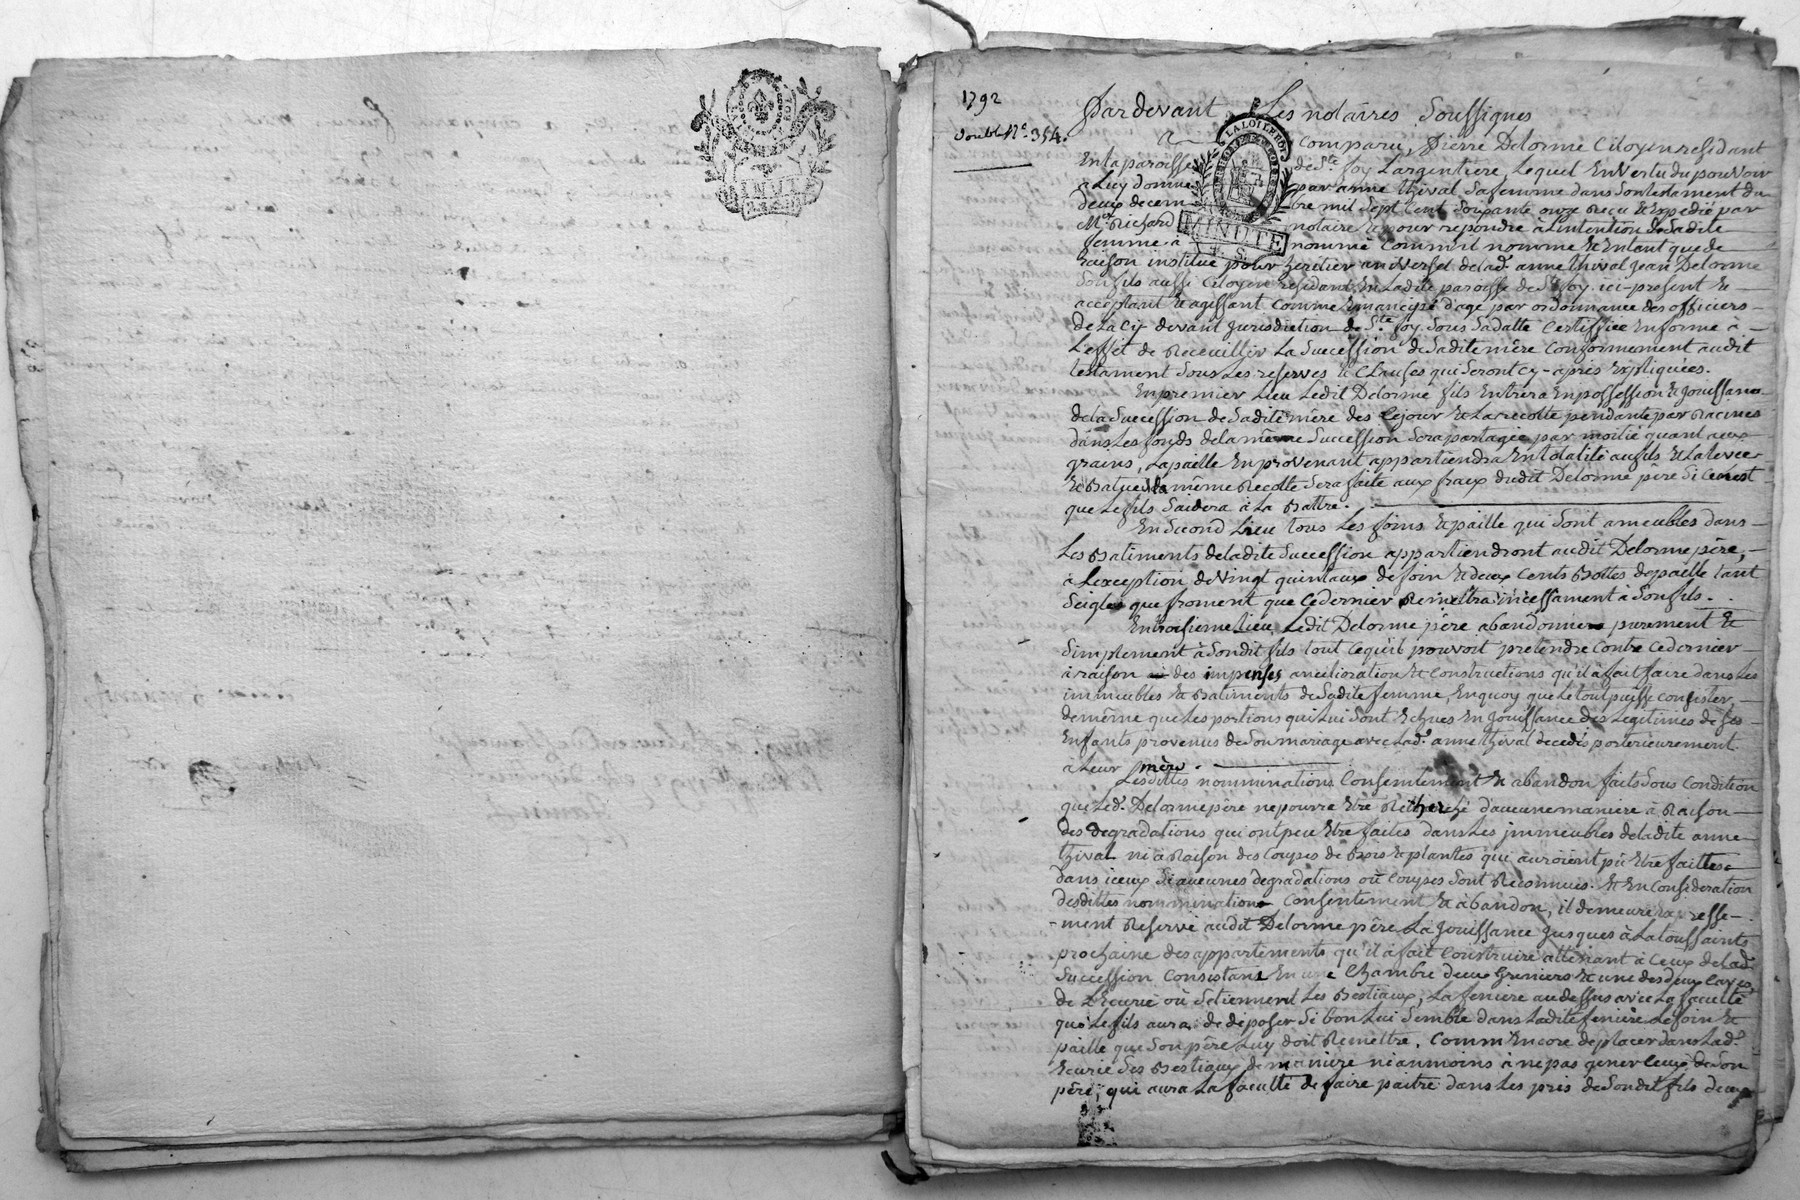 1792
Pardevant Les notaires Soussignés
LA LOI LE ROI
MINUTE
4. S.
a Comparu, Pierre Delorme Citoyen résidant
En la paroisse de Ste. foy Largentiere, Lequel En Vertu du pouvoir
à Luy donné par anne thival Sa femme dans Son testament du
deux decembre mil Sept Cent Soixante onze Reçu & Expédié par
Me. Richard notaire & pour repondre à Lintention de Sadite
femme à nommé Comme il nomme & Entant que de
Raison institue pour heritier universel de lad. anne thival jean Delorme
Son fils aussi Citoyen résidant En Ladite paroisse de Ste foy ici-present &
acceptant & agissant Comme Emancipé d'age par ordonnance des officiers
de La Cy devant jurisdiction de Ste. foy Sous Sa datte Certiffiée En forme à
L'effet de Receuillir La Succession de Sadite mére Conformement audit
testament Sous Les reserves & Clauses qui Seront Cy-après Expliquées.
En premier Lieu Ledit Delorme fils Entrera En possession & jouissance
de la Succession de Sadite mére des Cejour & La recolte pendante par Racines
dans Les fonds de la même Succession Sera partagée par moitié quant aux
grains, La paille En provenant appartiendra En totalité au fils & La levée
& Battue de la même Recolte Sera faite aux fraix dudit Delorme pére Si Ce n'est
que Le fils S'aidera à La Battre.
En Second Lieu tous Les foins & paille qui Sont ameublés dans
Les Batiments de ladite Succession appartiendront audit Delorme pére,
à L'exception de Vingt quintaux de foin & deux Cents Bottes de paille tant
Seigle que froment que Ce dernier Remettra incessament à Son fils.
En troisieme Lieu Ledit Delorme pére abandonne purement &
Simplement à Sondit fils tout Ce qu'il pouvoit pretendre Contre Ce dernier
à raison des impenses amélioration & Constructions qu'il à fait faire dans Les
immeubles & Batiments de Sadite femme, En quoy que Le tout puisse Consister,
de même que Les portions qui Lui Sont Echues En jouissance des Legitimes de Ses
Enfants provenus de Son mariage avec Lad. anne thival decedés posterieurement
à Leur mére.
Lesdittes nomminations Consentement & abandon faits Sous Condition
que Led. Delorme pére ne pourra Etre Recherché d'aucune maniére à Raison
des degradations qui ont peu Etre faites dans Les immeubles de ladite anne
thival ni à Raison des Coupes de Bois & plantes qui auroient pû Etre faittes
dans iceux Si aucunes degradations où Coupes Sont Reconnues. & En Consideration
desdittes nomminations Consentement & abandon, il demeure expresse-
-ment Reservé audit Delorme pére La jouissance jusques à La toussaints
prochaine des appartements qu'il à fait Construire attenant à Ceux de lad.
Succession Consistans En une Chambre deux Greniers & une des deux Caves,
de L'Ecurie où Se tiennent Les Bestiaux, La feniere au dessus avec La faculté
que Le fils aura de déposer Si bon Lui Semble dans Ladite feniére Le foin &
paille que Son pére Luy doit Remettre, Comme Encore de placer dans Lad.
Ecurie Ses Bestiaux de maniére néanmoins à ne pas gener Ceux de Son
pére, qui aura La faculté de faire paitre dans Les prés de Sondit fils deux